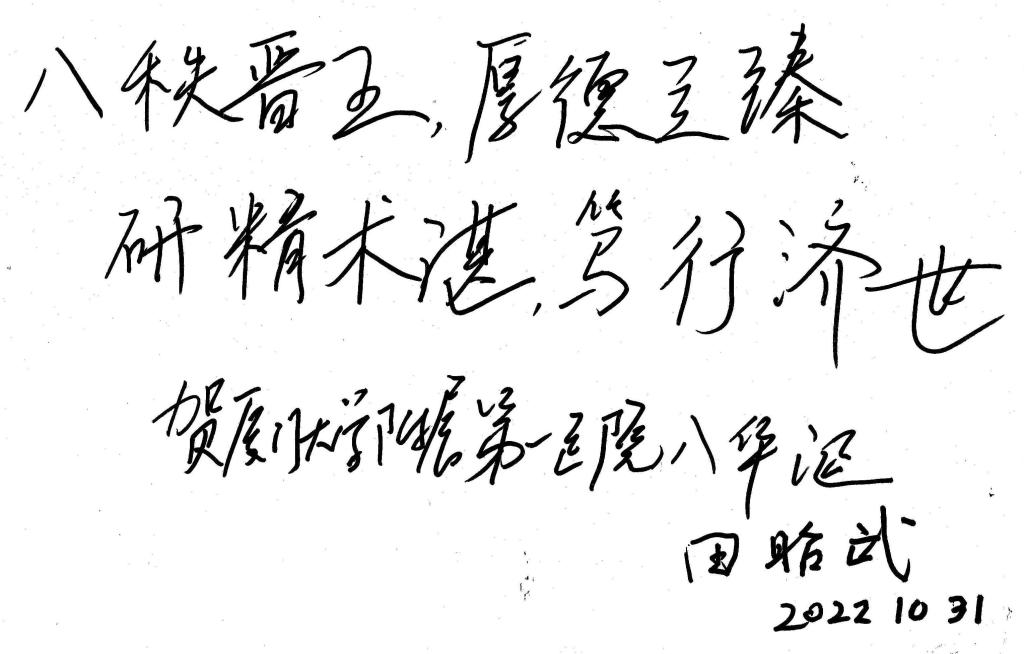 八秩晋五,厚德立臻
研精术湛,笃行济世
贺厦门大学附属第一医院八华诞
田昭武
2022 10 31